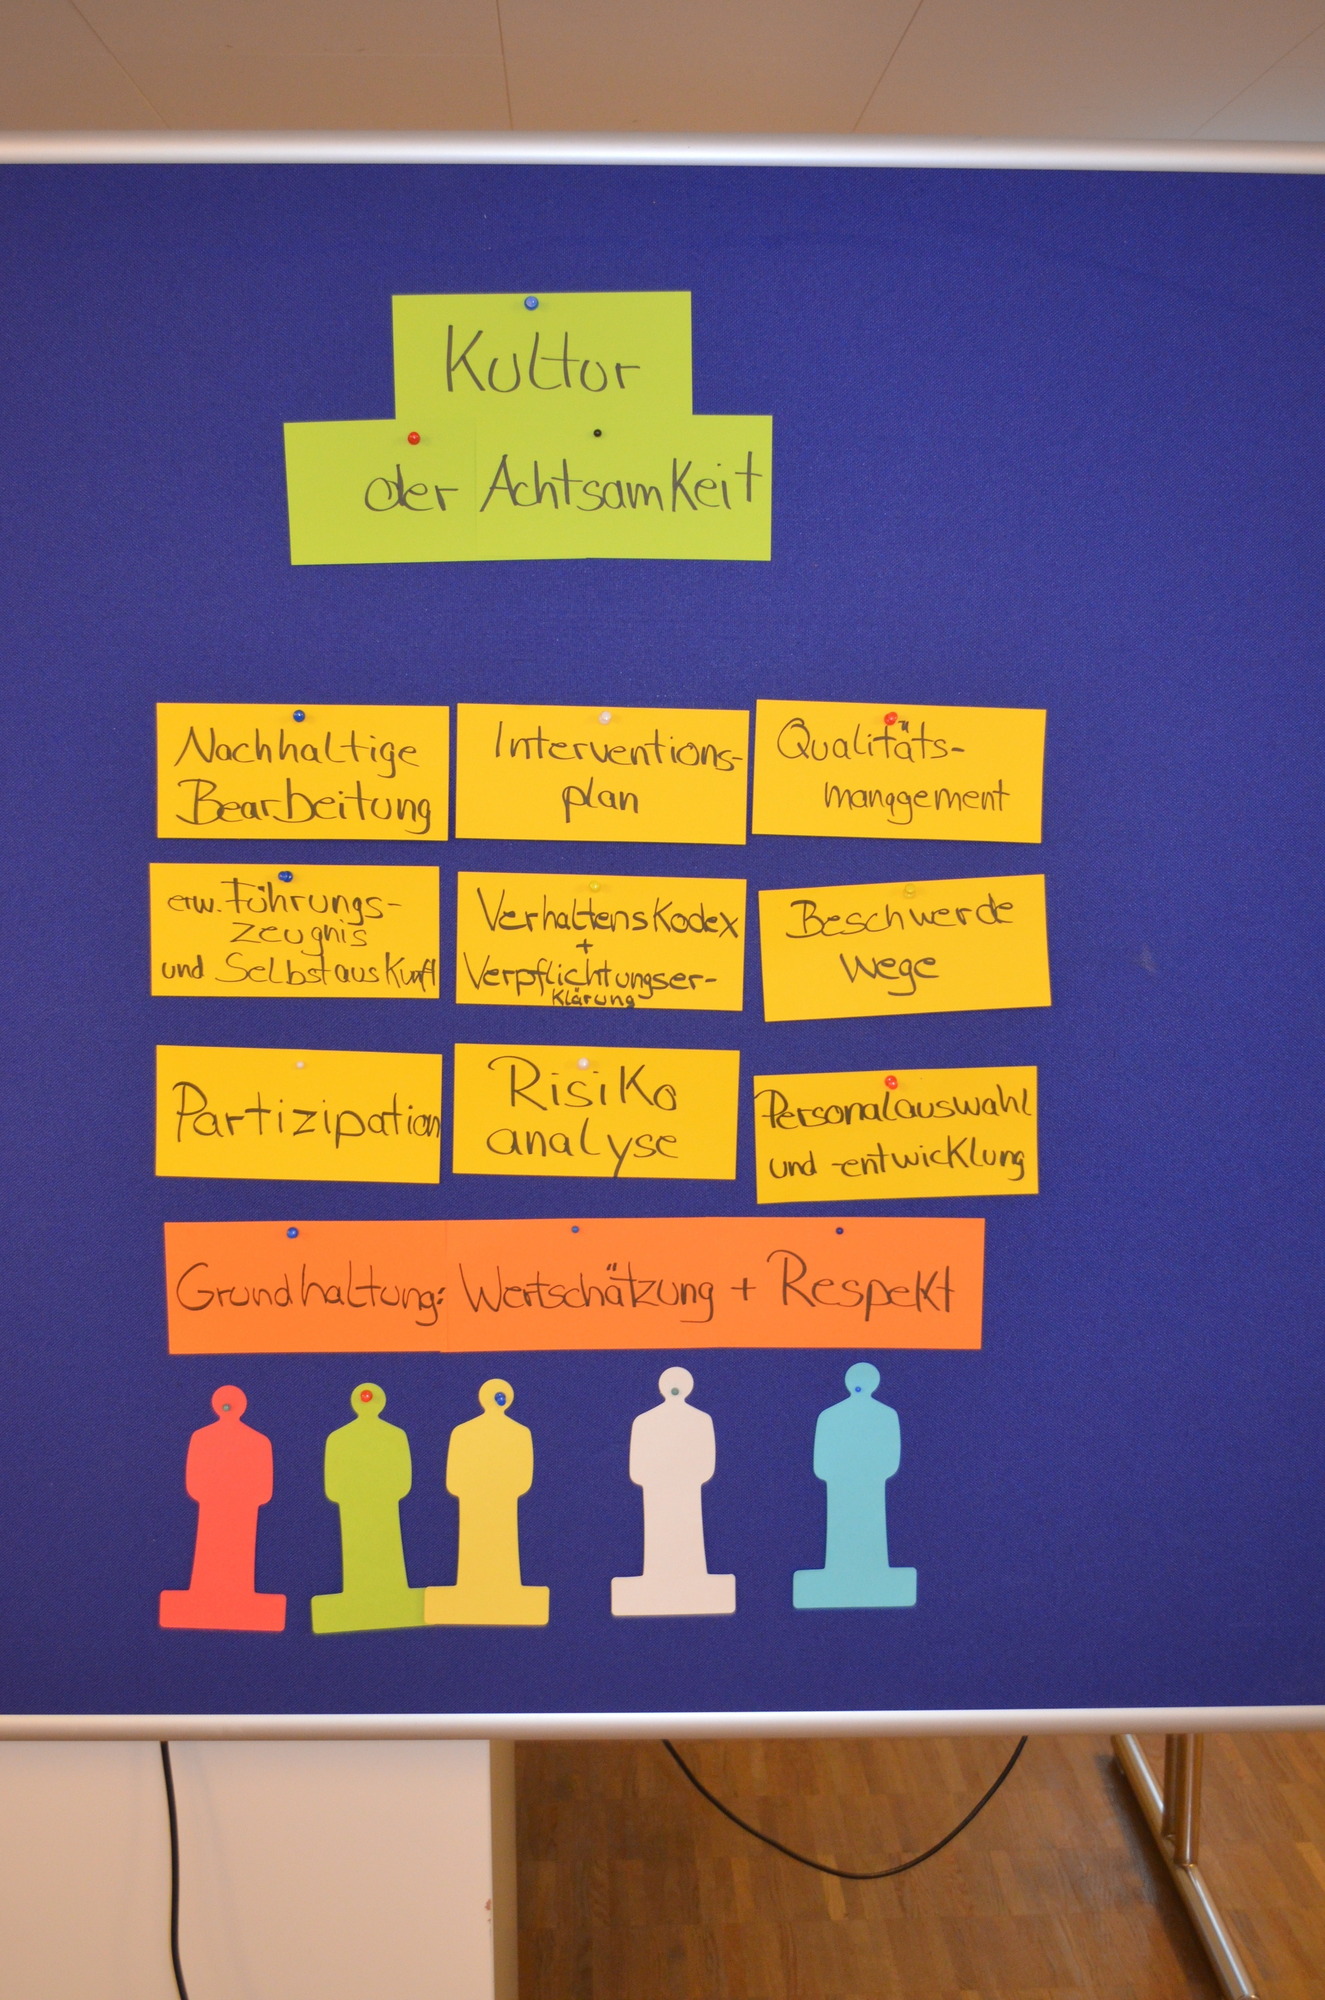 Kultur
der Achtsamkeit
Nachhaltige
Bearbeitung
Interventions-
plan
Qualitäts-
management
erw. Führungs-
zeugnis
und Selbstauskunft
Verhaltenskodex
+
Verpflichtungser-
klärung
Beschwerde
wege
Partizipation
Risiko
analyse
Personalauswahl
und -entwicklung
Grundhaltung: Wertschätzung + Respekt